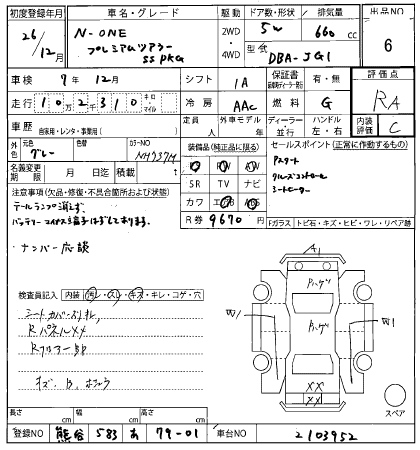 初度登録年月 車名・グレード 駆動 ドア数・形状 排気量 出品NO
26/12月 N-ONE プレミアムツアラー SS PKG 2WD ・ 4WD 5W 660 cc 6
型式 DBA-JG1
車検 7年 12月 シフト IA 保証書 新車時ディーラー発行 有・無 評価点
走行 10万2千310 キロ・マイル 冷房 AAC 燃料 G RA
車歴 自家用・レンタ・事業用( ) 定員 人 外車モデル 年 ディーラー・並行 ハンドル 左・右 内装評価 C
外色 元色 グレー 色替 カラーNO NH737M 装備品(純正品に限る) セールスポイント(正常に作動するもの)
名義変更期限 月 日迄 積載 t SR TV ナビ
注意事項(欠品・修復・不具合箇所および状態) カワ エアB ABS
R券 9670 円
クルーズコントロール
シートヒーター
テールランプ消えず
バッテリーマイナス端子はずしてあります。
・ナンバー応談
Fガラス トビ石・キズ・ヒビ・ワレ・リペア跡
検査員記入 内装 汚レ・スレ・キズ・キレ・コゲ・穴
シートカバー
RパネルXX
RフロアーSP
キズ、B、
A1
Pハゲ
Pハゲ
W1
W1
XX
XX
スペア
長さ cm 幅 cm 高さ cm
登録NO 熊谷 583 あ 79-01 車台NO 2103952